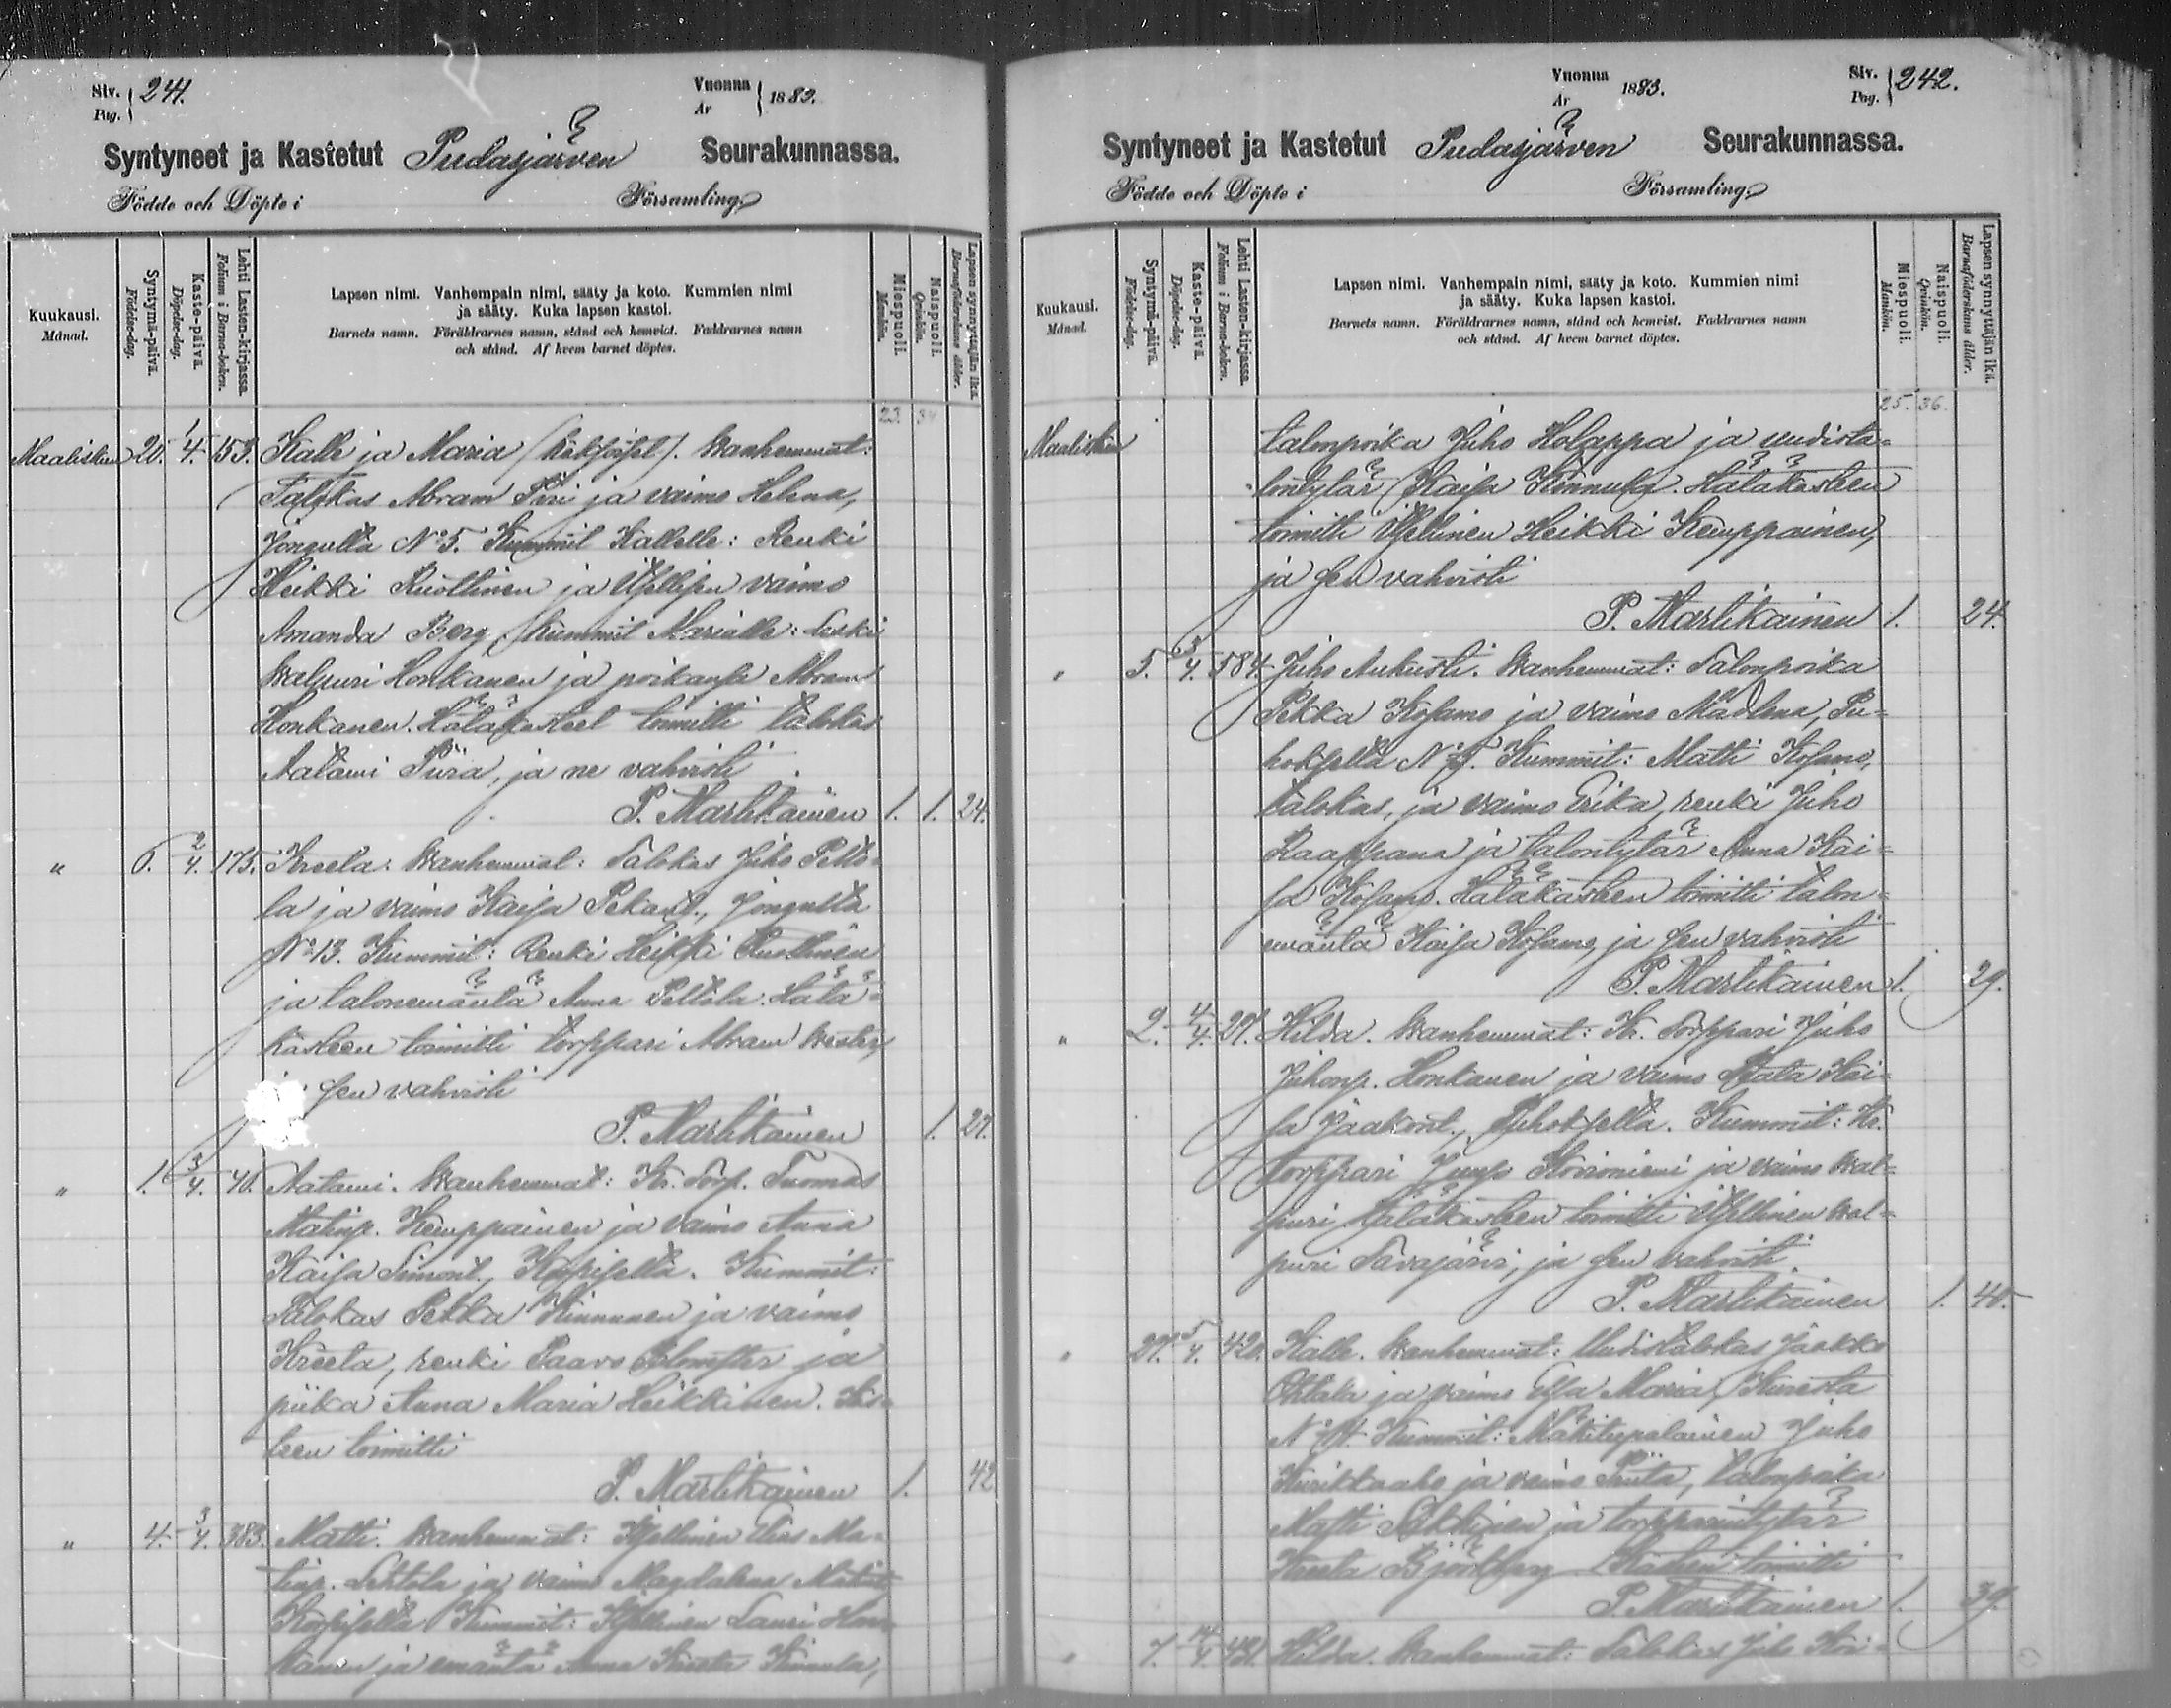 Siv. 241.
Pag.
Vuonna 1883.
År
Syntyneet ja Kastetut Pudasjärven Seurakunnassa.
Födde och Döpte i Församling
Kuukausi.
Månad.
Syntymä-päivä.
Födelse-dag.
Kaste-päivä.
Döpelse-dag.
Lehti Lasten-kirjassa.
Folium i Barna-boken.
Lapsen nimi. Vanhempain nimi, sääty ja koto. Kummien nimi
ja sääty. Kuka lapsen kastoi.
Barnets namn. Föräldrarnes namn, stånd och hemvist. Faddrarnes namn
och stånd. Af hvem barnet döptes.
Miespuoli.
Mankön.
Naispuoli.
Qvinkön.
Lapsen synnyttäjän ikä.
Barnaföderskans ålder.
23. 34
Maaliskuu 20. 1/4. 153. Kalle ja Maria (kaksoiset). Wanhemmat:
Talokas Abram Piri ja vaimo Helena,
Jongulta No 5. Kummit Kallelle: Renki
Heikki Ruottinen ja Itsellisen vaimo
Amanda Berg, kummit Marialle: Leski
Walpuri Honkanen ja poikansa Abram
Honkanen. Hätäkasteet toimitti talokas
Aatami Piira, ja ne vahvisti
P. Martikainen 1. 1. 24.
" 6. 2/4. 175. Kreeta. Wanhemmat: Talokas Juho Petto-
la ja vaimo Kaisa Pekant., Jongulta
No 13. Kummit: Renki Heikki Ruottinen
ja talonemäntä Anna Pettola. Hätä-
kasteen toimitti torppari Abram
sen vahvisti
P. Martikainen 1. 27.
" 1. 3/4. 40. Aatami. Wanhemmat: Kr. Torp. Tuomas
Matinp. Kemppainen ja vaimo Anna
Kaisa Simont., Kummit:
Talokas Pekka Kinnunen ja vaimo
Kreeta, renki Paavo Blomster ja
piika Anna Maria Heikkinen. Kas-
teen toimitti
P. Martikainen 1. 42
" 4. 3/4. 383. Matti. Wanhemmat: Itsellinen Elias Ma-
tinp. Lehtola ja vaimo Magdalena
Kummit: Itsellinen Lauri
ja emäntä Anna Kreeta
Vuonna 1883.
År
Siv. 242.
Pag.
Syntyneet ja Kastetut Pudasjärven Seurakunnassa.
Födde och Döpte i Församling
Kuukausi.
Månad.
Syntymä-päivä.
Födelse-dag.
Kaste-päivä.
Döpelse-dag.
Lehti Lasten-kirjassa.
Folium i Barna-boken.
Lapsen nimi. Vanhempain nimi, sääty ja koto. Kummien nimi
ja sääty. Kuka lapsen kastoi.
Barnets namn. Föräldrarnes namn, stånd och hemvist. Faddrarnes namn
och stånd. Af hvem barnet döptes.
Miespuoli.
Mankön.
Naispuoli.
Qvinkön.
Lapsen synnyttäjän ikä.
Barnaföderskans ålder.
25. 36.
Maaliskuu talonpoika Juho Holappa ja uudista-
lontytär Kaisa Hätäkasteen
toimitti Itsellinen Heikki Kemppainen,
ja sen vahvisti
P. Martikainen 1. 24.
" 5. 3/4. 584. Juho Aukusti. Wanhemmat: Talonpoika
Pekka Kosamo ja vaimo Madlena, Pu-
hokselta Kummit: Matti Kosamo,
talokas, ja vaimo Erika, renki Juho
Kaappana ja talontytär Anna Kai-
sa Kosamo. Hätäkasteen toimitti talon-
emäntä Kaisa Kosamo, ja sen vahvisti
P. Martikainen 1. 29.
" 2. 4/4. 27. Hilda. Wanhemmat: Kr. Torppari Juho
Juhonp. Honkanen ja vaimo Kai-
sa Jaakont., Puhokselta. Kummit: Kr.
torppari ja vaimo Wal-
puri. Hätäkasteen toimitti Itsellinen Wal-
puri Tavajärvi, ja sen vahvisti
P. Martikainen 1. 40.
" 27. 5/4. 420. Kalle. Wanhemmat: Uudistalokas Jaakko
Ohtala ja vaimo Elsa Maria,
Kummit: Mäkitupalainen Juho
Kurikkaaho ja vaimo talonpoika
Matti ja torpparintytär
Kreeta Björkberg. Kasteen toimitti
P. Martikainen 1. 39.
" 7. Hilda. Wanhemmat: Talokas Juho